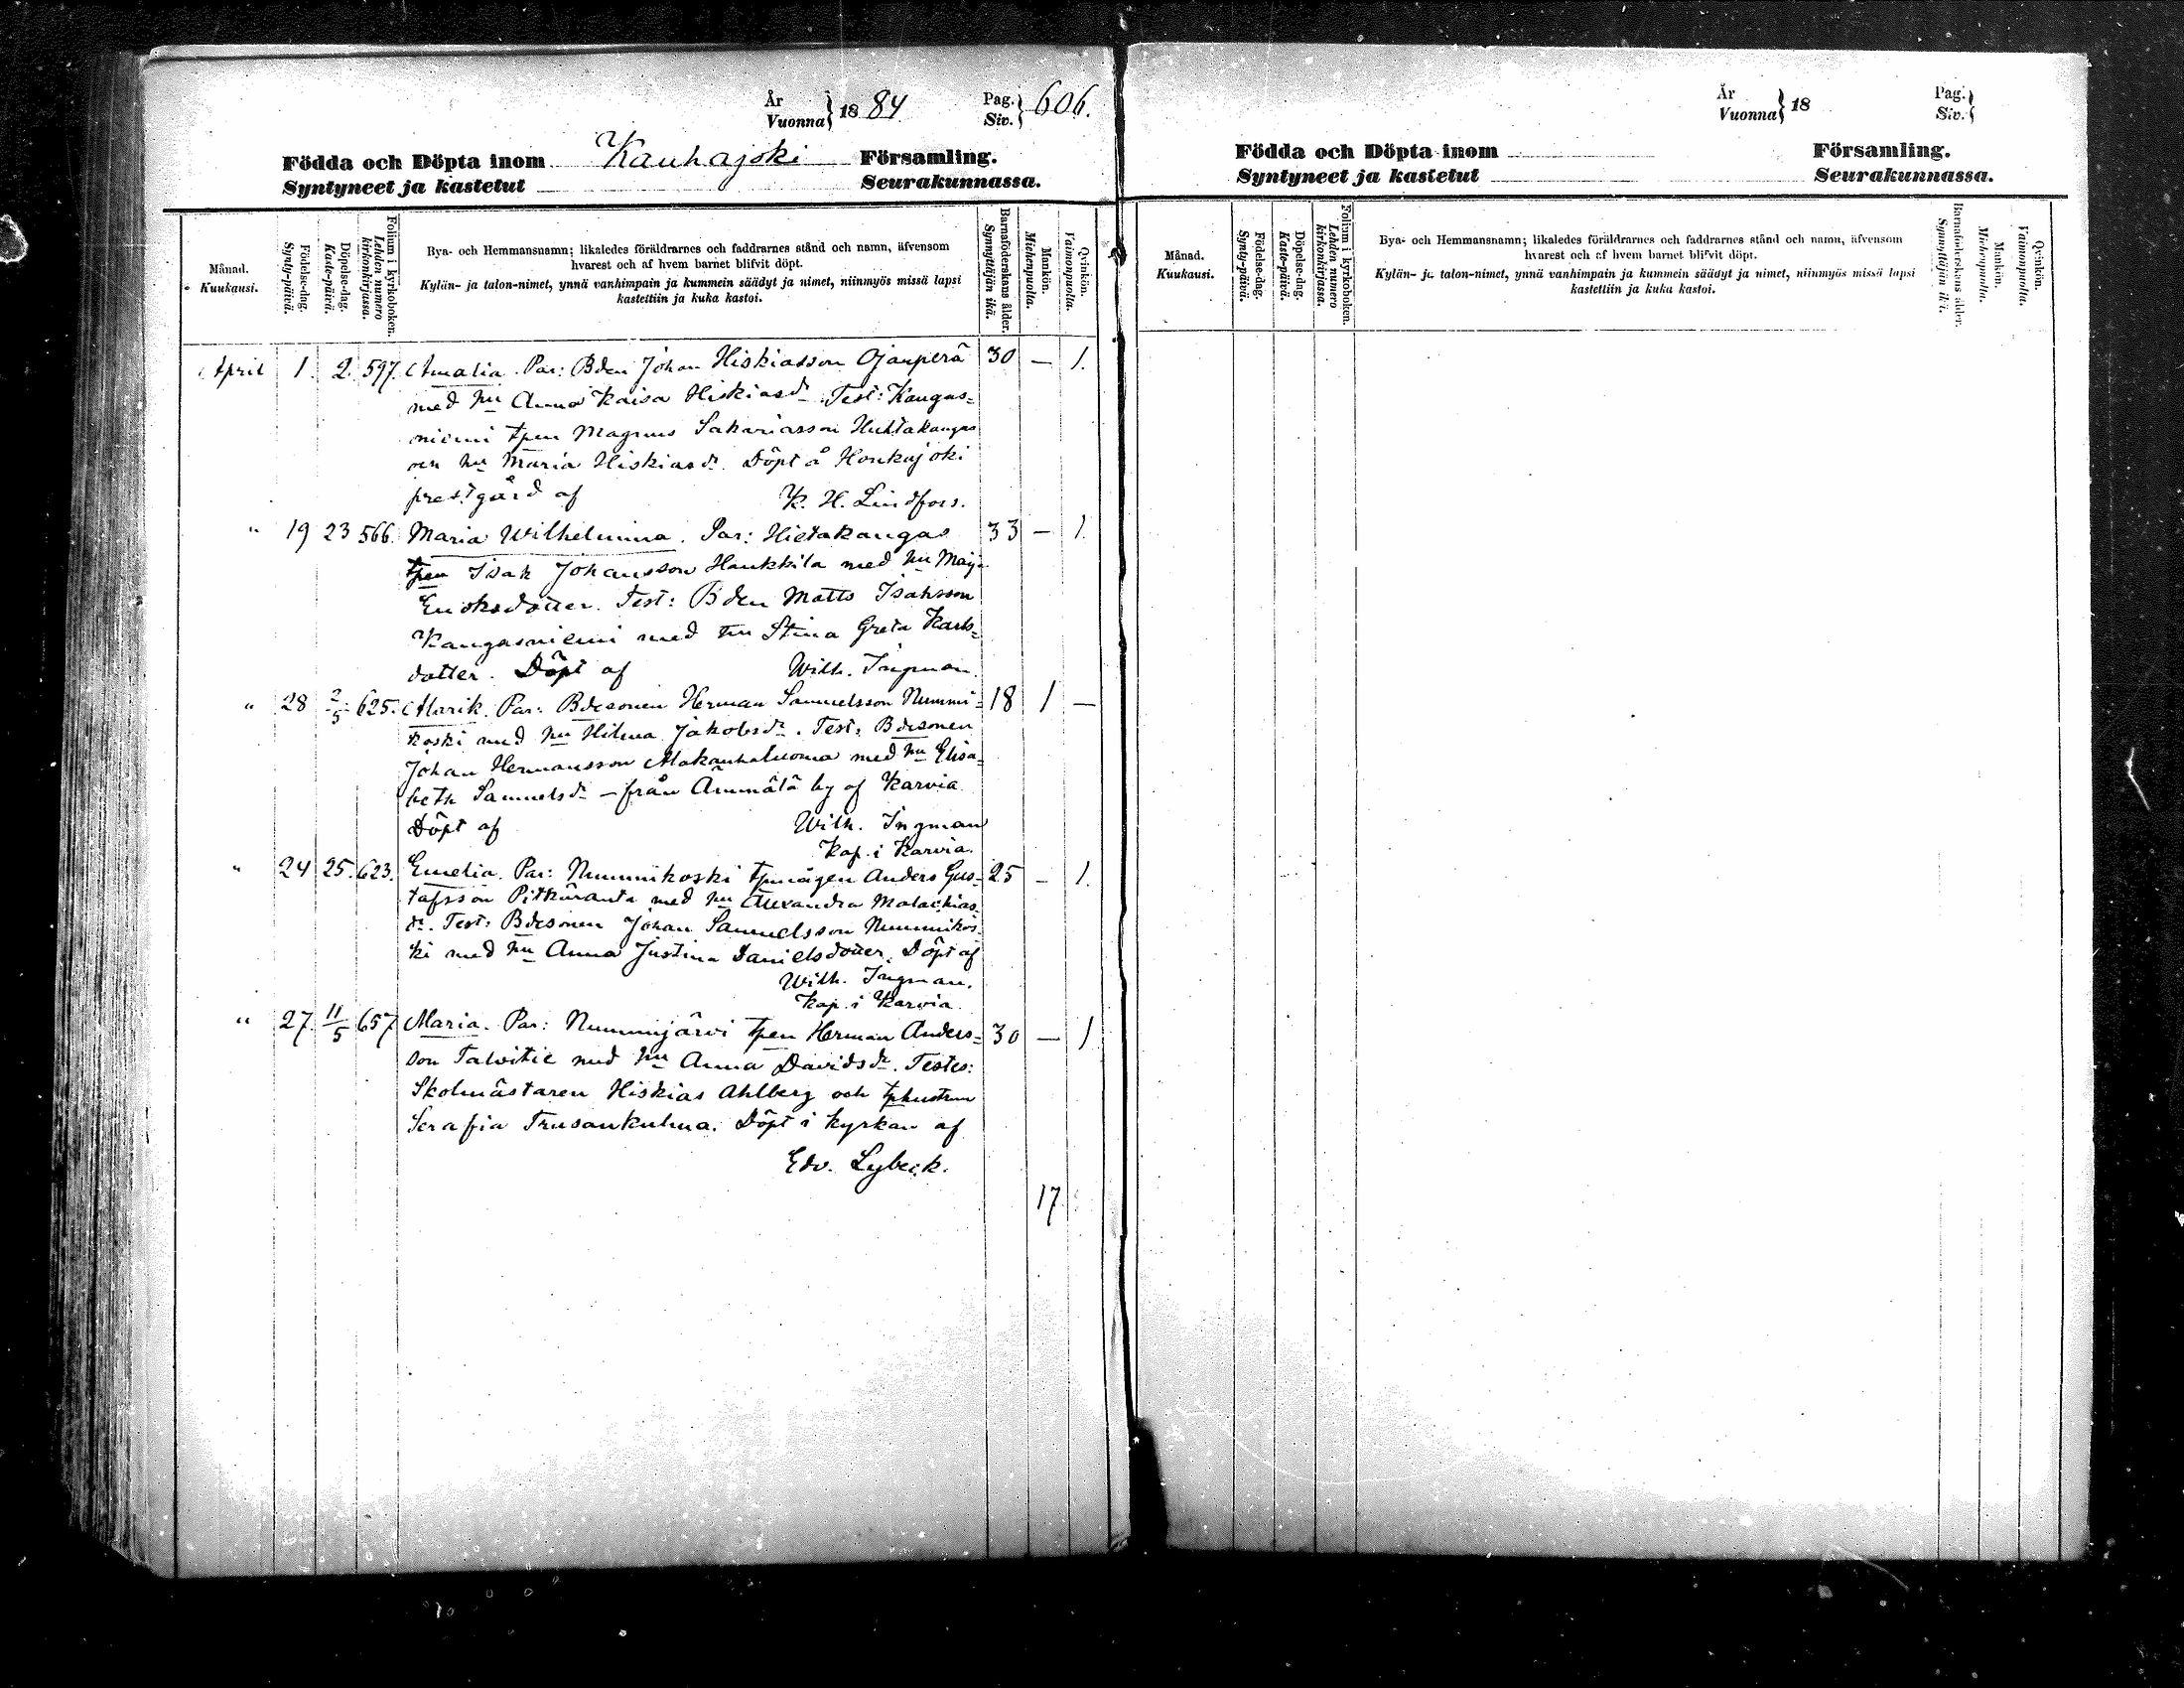 År
Vuonna } 18 84 Pag.
Siv. } 606.
Födda och Döpta inom Kauhajoki Församling.
Syntyneet ja kastetut Seurakunnassa.
Månad.
Kuukausi.
Födelse-dag.
Synty-päivä.
Döpelse-dag.
Kaste-päivä.
Folium i kyrkoboken.
Lehden numero
kirkonkirjassa.
Bya- och Hemmansnamn; likaledes föräldrarnes och faddrarnes stånd och namn, äfvensom
hvarest och af hvem barnet blifvit döpt.
Kylän- ja talon-nimet, ynnä vanhimpain ja kummein säädyt ja nimet, niinmyös missä lapsi
kastettiin ja kuka kastoi.
Barnaföderskans ålder.
Synnyttäjän ikä.
Mankön.
Miehenpuolta.
Qvinkön.
Vaimonpuolta.
April 1. 2. 597. Amalia. Par: Bden Johan Hiskiasson Ojanperä 30 — 1.
med hu Anna Kaisa Hiskiasdr. Test: Kangas=
niemi tpen Magnus Sakariasson Huhtakangas
och hu Maria Hiskiasdr. Döpt å Honkajoki
prestgård af K. H. Lindfors.
" 19 23 566. Maria Wilhelmina. Par: Hietakangas 33 — 1.
tpen Isak Johansson Haukkila med hu Maja
Enoksdotter. Test: Bden Matts Isaksson
Kangasniemi med hu Stina Greta Karls=
dotter. Döpt af Wilh. Ingman.
" 28 2/5 625. Alarik. Par: Bdesonen Herman Samuelsson Nummi= 18 1 —
koski med hu Hilma Jakobsdr. Test: Bdesonen
Johan Hermansson Alakauhaluoma med hu Elisa=
beth Samuelsdr — från Ämmälä by af Karvia
Döpt af Wilh. Ingman
Kap. i Karvia.
" 24 25. 623. Emelia. Par: Nummikoski tpmågen Anders Gus= 25 — 1.
tafsson Pitkäranta med hu Alexandra Malackias=
dr. Test: Bdesonen Johan Samuelsson Nummikos=
ki med hu Anna Justina Danielsdotter. Döpt af
Wilh. Ingman.
Kap. i Karvia.
" 27. 11/5 657 Maria. Par: Nummijärvi tpen Herman Anders= 30 — 1
son Talvitie med hu Anna Davidsdr. Testes:
Skolmästaren Hiskias Ahlberg och tphustrun
Serafia Trusankulma. Döpt i kyrkan af
Edv. Lybeck.
17
År
Vuonna } 18 Pag.
Siv. }
Födda och Döpta inom Församling.
Syntyneet ja kastetut Seurakunnassa.
Månad.
Kuukausi.
Födelse-dag.
Synty-päivä.
Döpelse-dag.
Kaste-päivä.
Folium i kyrkoboken.
Lehden numero
kirkonkirjassa.
Bya- och Hemmansnamn; likaledes föräldrarnes och faddrarnes stånd och namn, äfvensom
hvarest och af hvem barnet blifvit döpt.
Kylän- ja talon-nimet, ynnä vanhimpain ja kummein säädyt ja nimet, niinmyös missä lapsi
kastettiin ja kuka kastoi.
Barnaföderskans ålder.
Synnyttäjän ikä.
Mankön.
Miehenpuolta.
Qvinkön.
Vaimonpuolta.